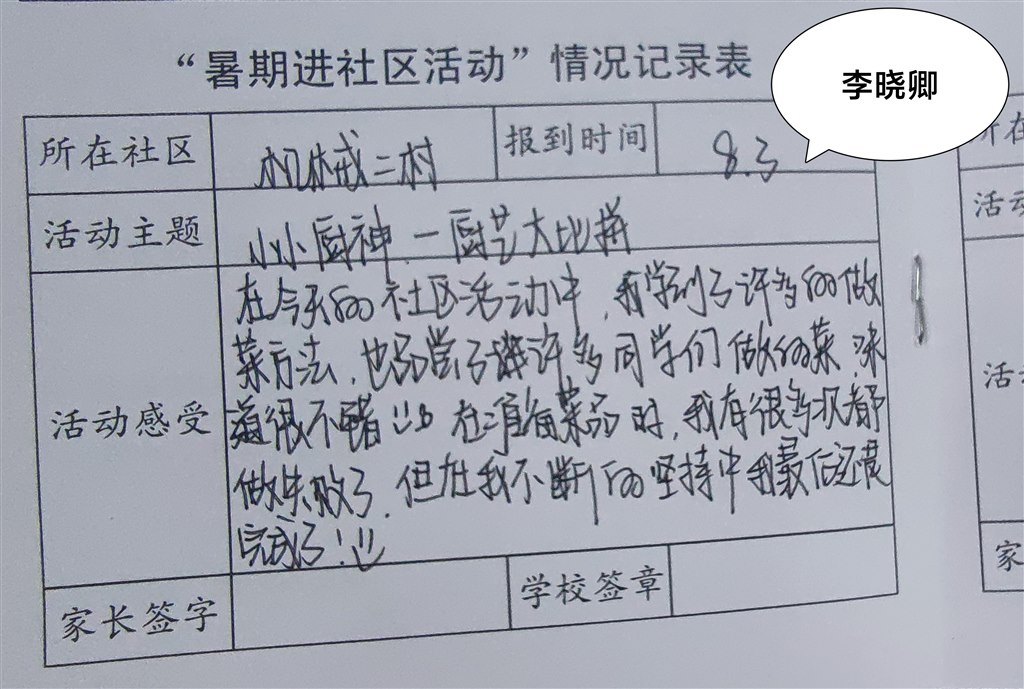 “暑期进社区活动”情况记录表
李晓卿
所在社区 机械二村 报到时间 8.3
活动主题 小小厨神.一厨艺大比拼
活动感受
在今天的社区活动中,我学到了许多的做
菜方法,也品尝了许多同学们做的菜,味
道很不错 在准备菜品时,我有很多次都
做失败了,但在我不断的坚持中我最后还是
完成了!
家长签字 学校签章
所在
活动
活动
家